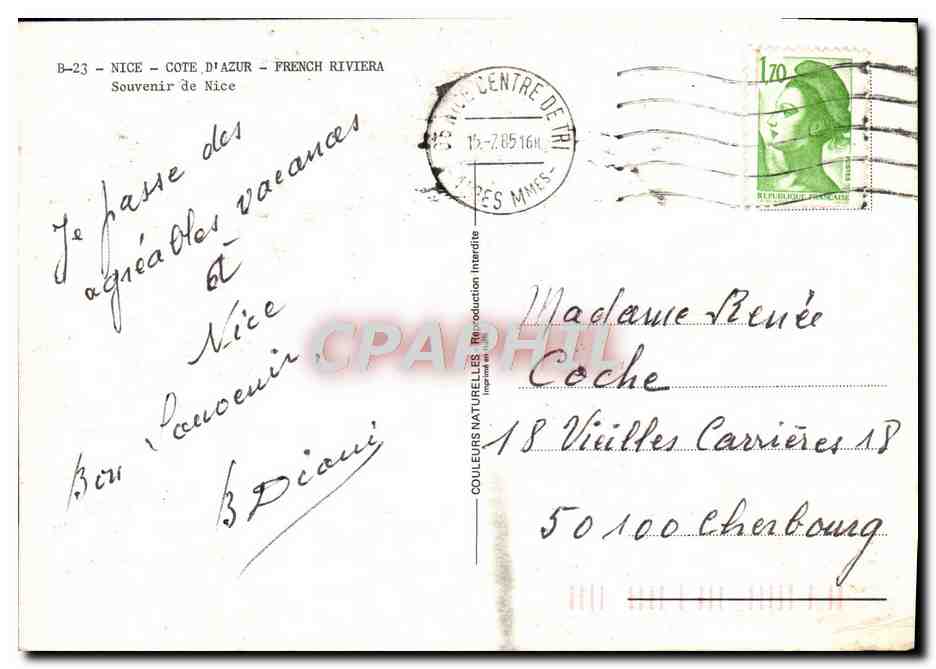 B-23 - NICE - COTE D'AZUR - FRENCH RIVIERA
Souvenir de Nice
Je passe des
agréables vacances
à
Nice
Bon Souvenir.
B Diani
COULEURS NATURELLES - Reproduction Interdite
Imprimé en Italie
06 NICE CENTRE DE TRI
15-7.85 16H
ALPES MMES-
1,70
POSTES
REPUBLIQUE FRANCAISE
Madame Renée
Coche
18 Vieilles Carrières 18
50100 Cherbourg
CPAPHIL